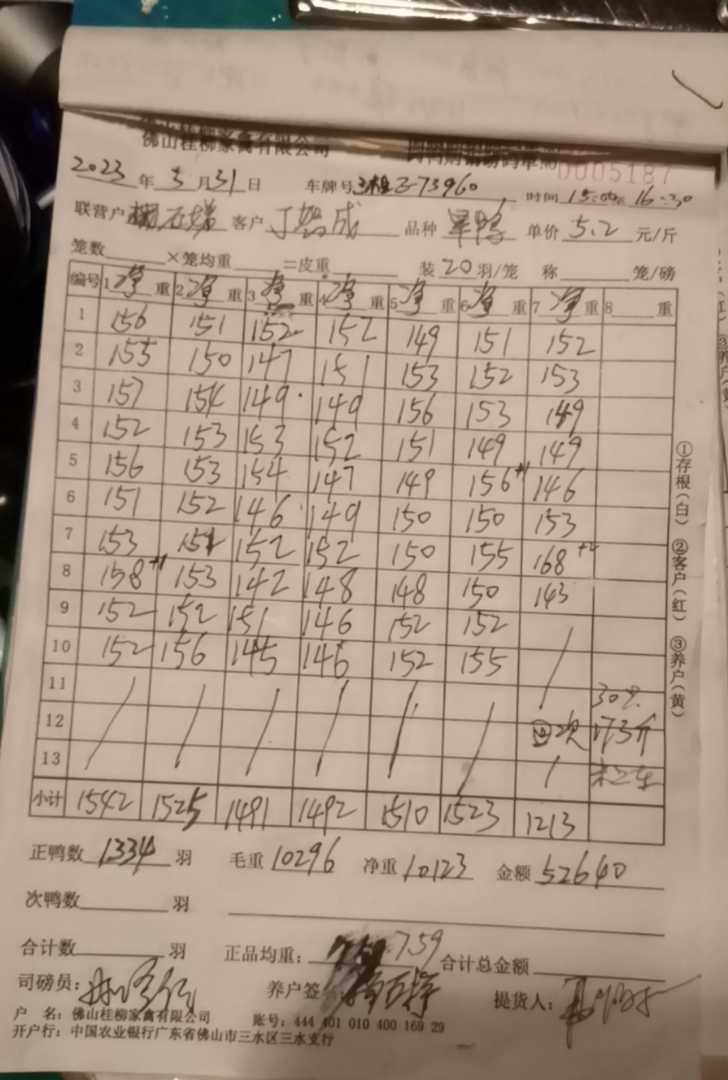 佛山桂柳家禽有限公司
0005187
2023年5月31日 车牌号 Z-73960 时间 15:00 16:30
联营户 客户 丁 成 品种 单价 5.2 元/斤
笼数 ×笼均重 =皮重 装 20 羽/笼 称 笼/磅
编号 1 净 重 2 净 重 3 净 重 4 净 重 5 净 重 6 净 重 7 净 重 8 重
1 156 151 152 152 149 151 152
2 155 150 147 151 153 152 153
3 157 154 149 149 156 153 149
4 152 153 153 152 151 149 149
5 156 153 154 147 149 156+1 146
6 151 152 146 149 150 150 153
7 153 151 152 152 150 155 168
8 158+1 153 142 148 148 150 143
9 152 152 151 146 152 152
10 152 156 145 146 152 155
11
12 173斤
13
小计 1542 1525 1491 1492 1510 1523 1213
正鸭数 1334 羽 毛重 10296 净重 10123 金额 52640
次鸭数 羽
合计数 羽 正品均重: 7.59 合计总金额
司磅员: 养户签 提货人:
户 名: 佛山桂柳家禽有限公司 账号: 444 401 010 400 169 29
开户行: 中国农业银行广东省佛山市三水区三水支行
①存根(白) ②客户(红) ③养户(黄)